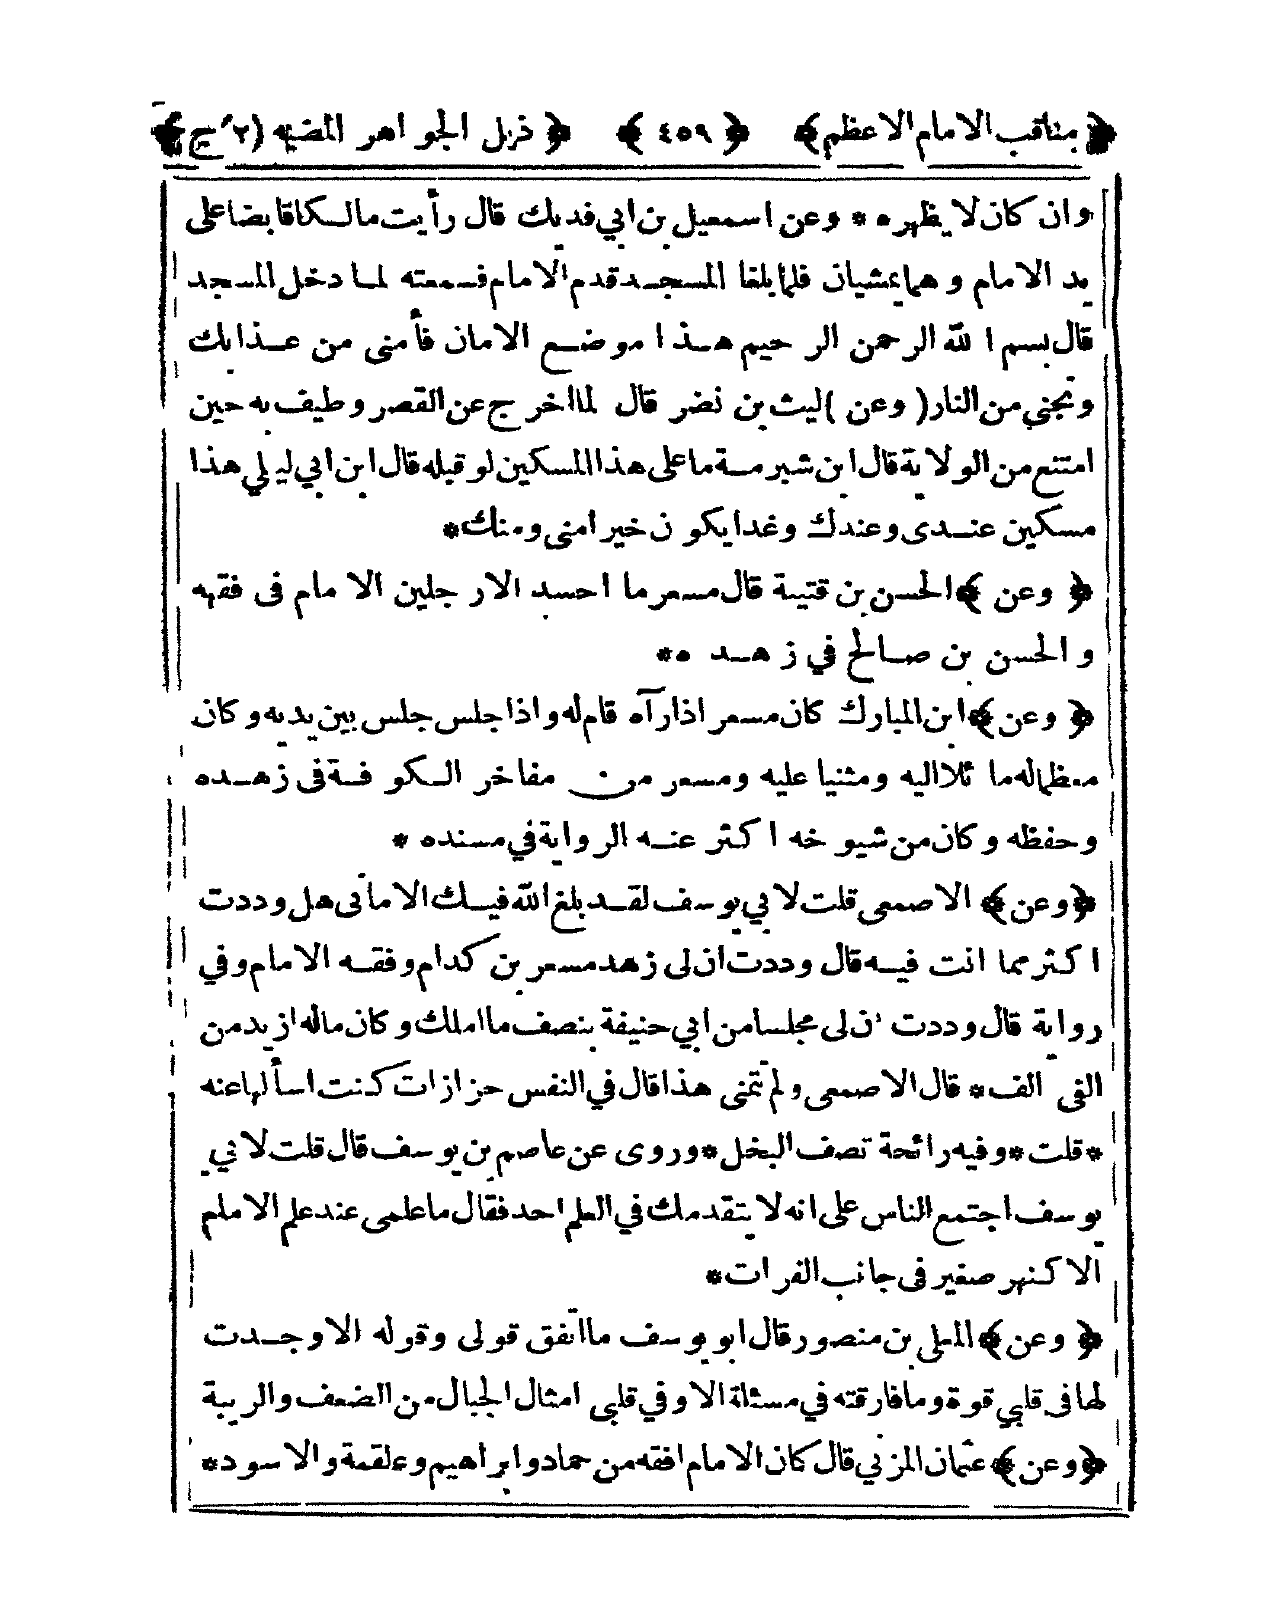 ﴿مناقب الامام الاعظم﴾ ﴿٤٥٩﴾ ﴿ذيل الجواهر المضيه (٢ ج)﴾
وان كان لا يظهره * وعن اسمعيل بن ابي فديك قال رأيت مالكا قابضا على
يد الامام وهما يمشيان فلما بلغا المسجد قدم الامام فسمعته لما دخل المسجد
قال بسم الله الرحمن الرحيم هذا موضع الامان فأمنى من عذابك
ونجني من النار (وعن) ليث بن نضر قال لما اخرج عن القصر وطيف به حين
امتنع من الولاية قال ابن شبرمة ما على هذا المسكين لو قبله قال ابن ابي ليلي هذا
مسكين عندى وعندك وغدا يكون خيرا منى ومنك*
﴿وعن﴾ الحسن بن قتيبة قال مسعر ما احسد الا رجلين الامام فى فقهه
والحسن بن صالح في زهده*
﴿وعن﴾ ابن المبارك كان مسعر اذا رآه قام له واذا جلس جلس بين يديه وكان
معظما له مائلا اليه ومثنيا عليه ومسعر من مفاخر الكوفة فى زهده
وحفظه وكان من شيوخه اكثر عنه الرواية في مسنده *
﴿وعن﴾ الاصمعى قلت لابي يوسف لقد بلغ الله فيك الامانى هل وددت
اكثر مما انت فيه قال وددت ان لى زهد مسعر بن كدام وفقه الامام وفي
رواية قال وددت ان لى مجلسا من ابي حنيفة بنصف ما املك وكان ماله ازيد من
الفى الف * قال الاصمعى ولم تمنى هذا قال في النفس حزازات كنت اسأله عنه
*قلت* وفيه رائحة تصف البخل* وروى عن عاصم بن يوسف قال قلت لابي
يوسف اجتمع الناس على انه لا يتقدمك في العلم احد فقال ما علمى عند علم الامام
الا كنهر صغير فى جانب الفرات*
﴿وعن﴾ المعلى بن منصور قال ابو يوسف ما اتفق قولى وقوله الا وجدت
لها فى قلبي قوة وما فارقته في مسئلة الا وفي قلبى امثال الجبال من الضعف والريبة
﴿وعن﴾ عثمان المزني قال كان الامام افقه من حماد وابراهيم وعلقمة والاسود*